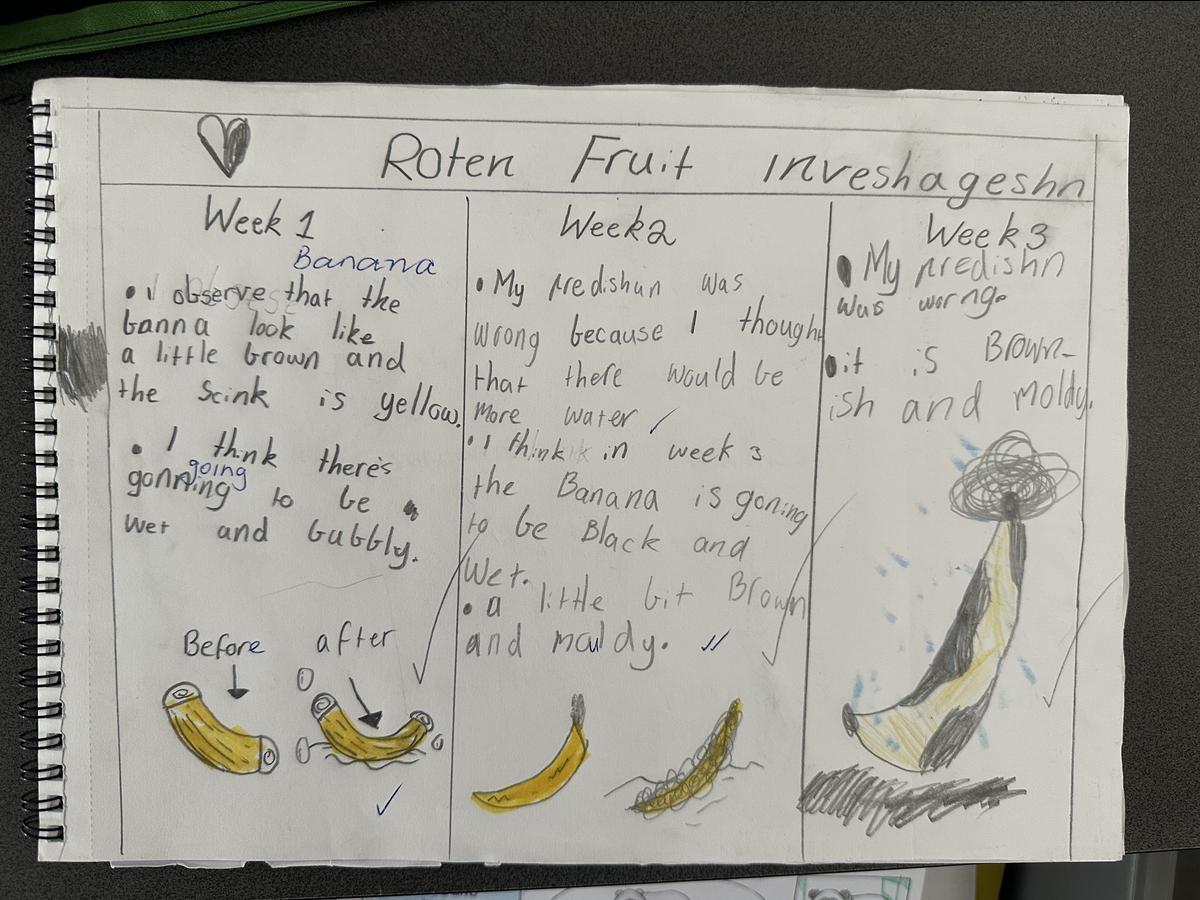 Roten Fruit inveshageshn
Week 1
Banana
• I observe that the
banna look like
a little brown and
the scink is yellow.
• I think there's
going
gonning to be
wet and bubbly.
Before after
Week2
• My predishun was
wrong because I though
that there would be
more water
• I think in week 3
the Banana is goning
to be Black and
wet.
• a little bit Brown
and mouldy.
Week 3
• My predishn
was worng.
• it is Brown-
ish and moldy.